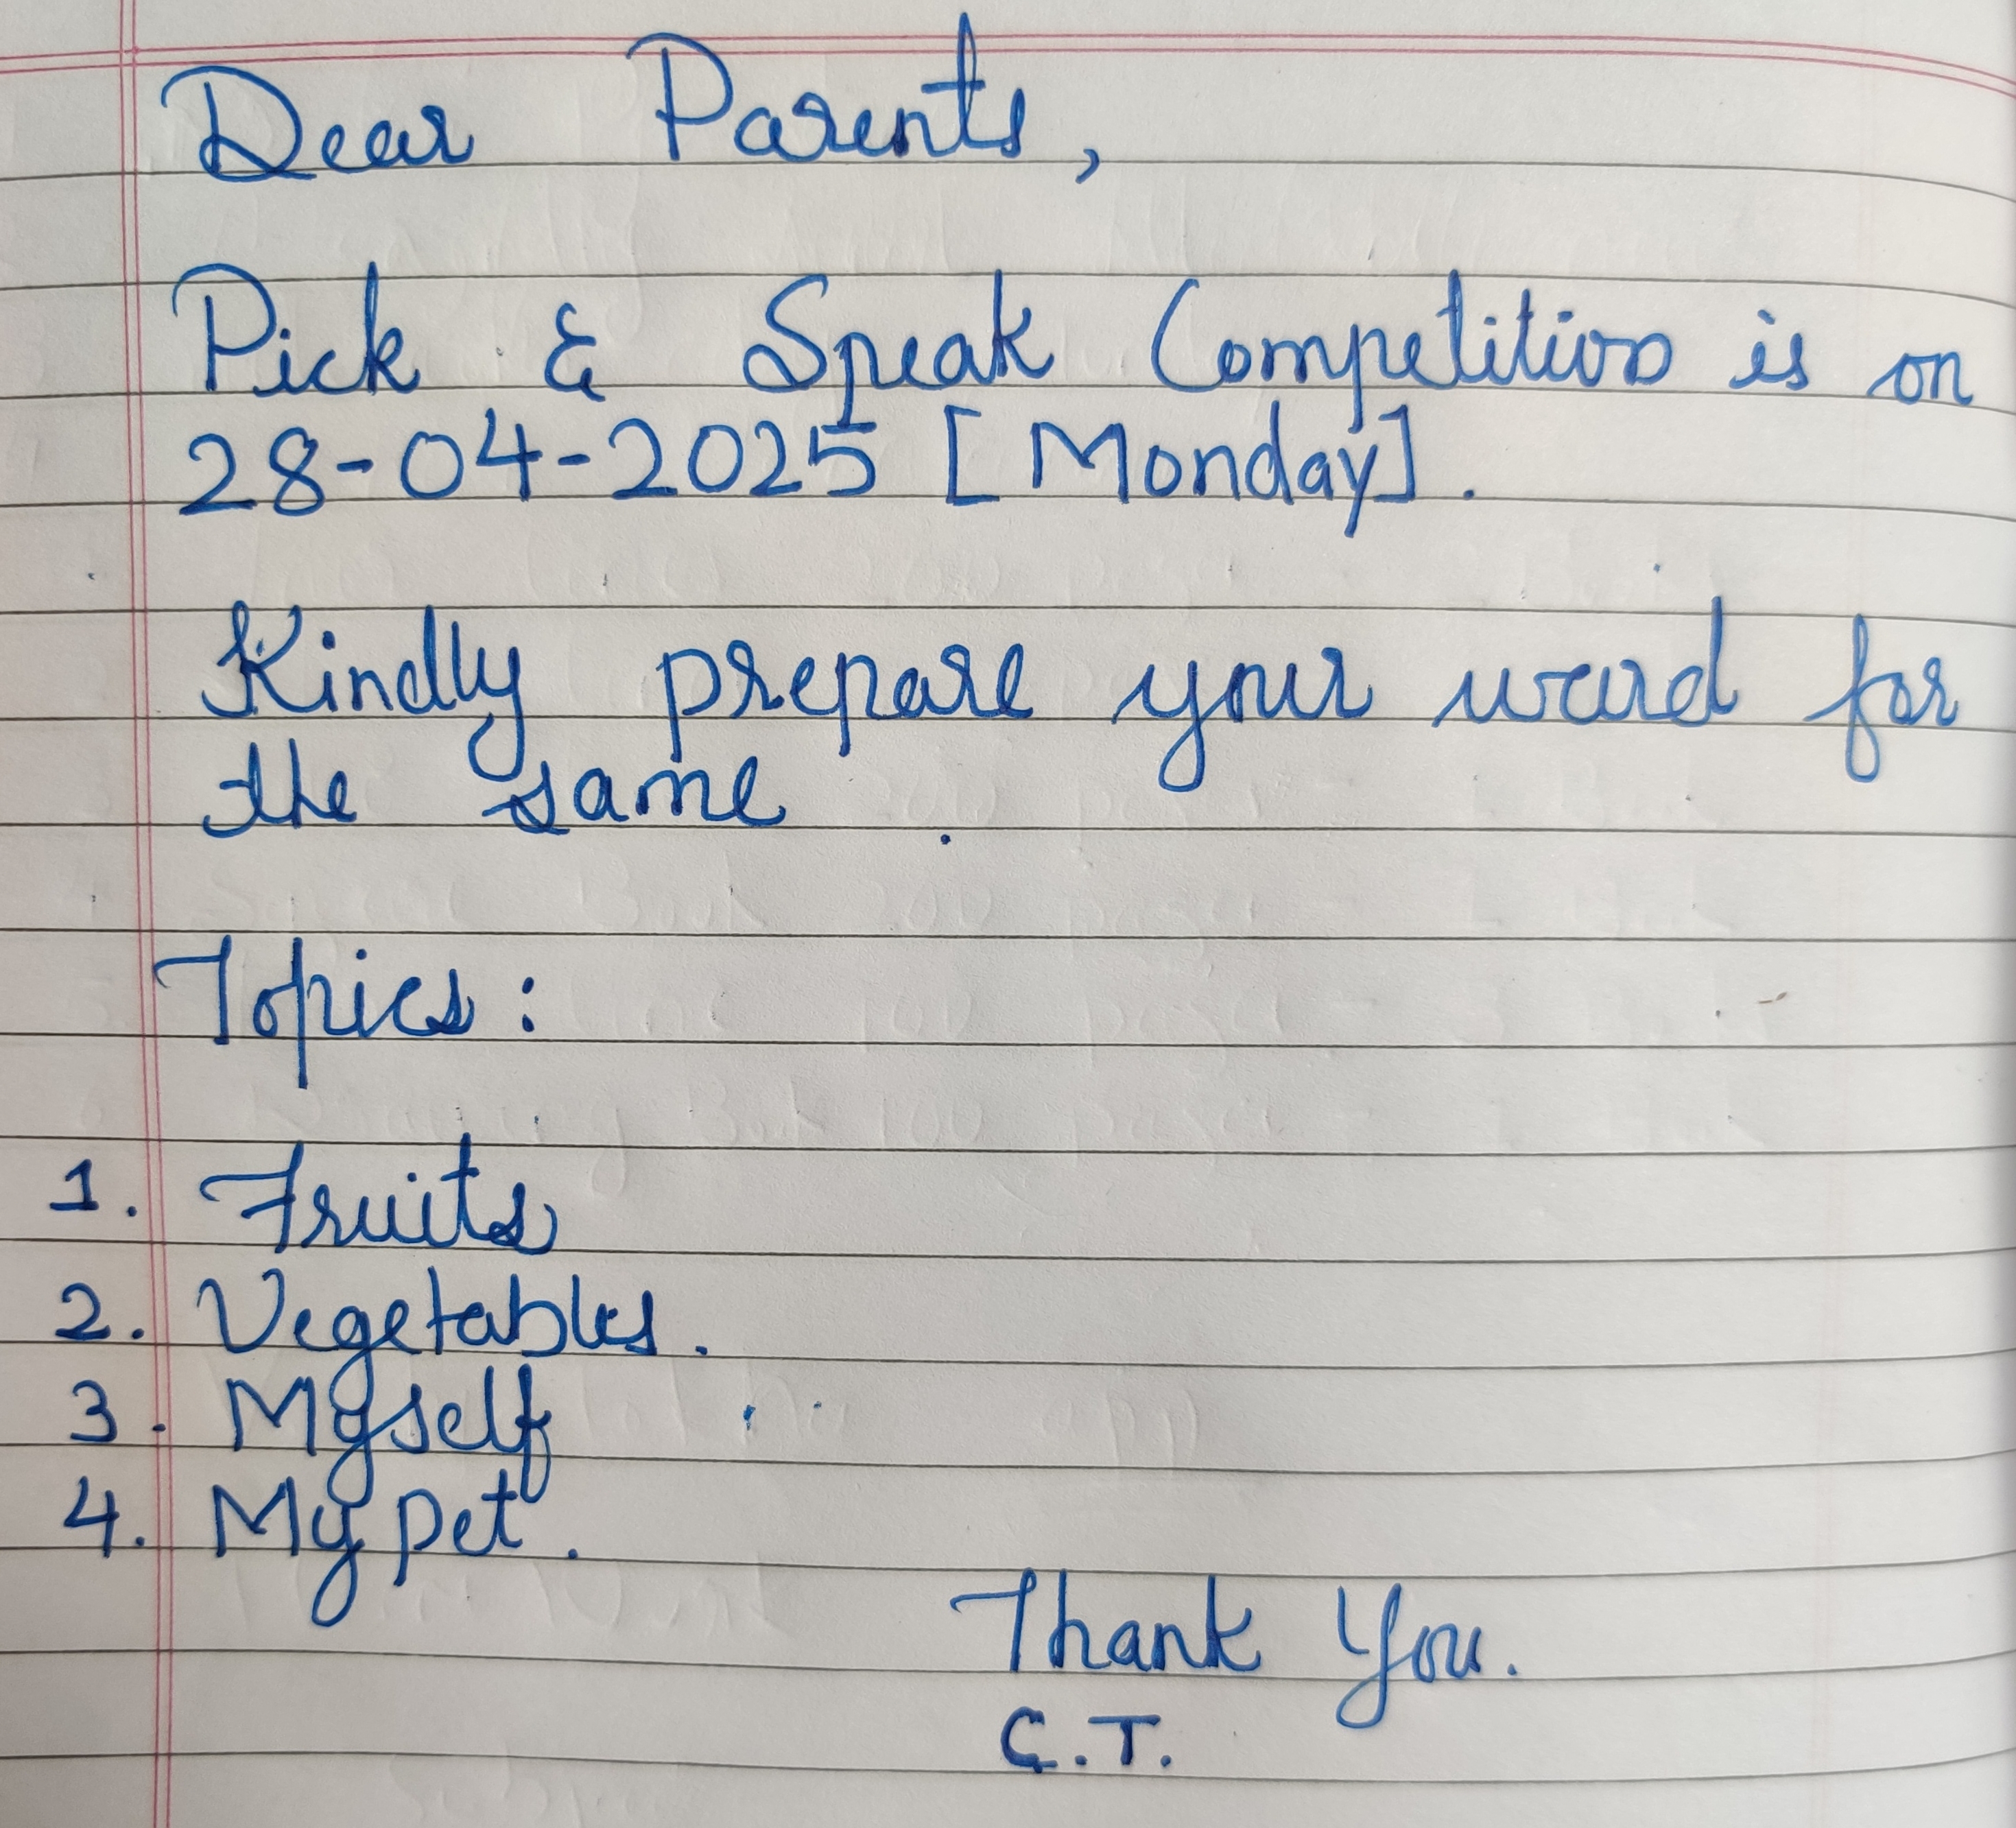 Dear Parents,
Pick & Speak Competition is on
28-04-2025 [Monday].
Kindly prepare your ward for
the same.
Topics:
1. Fruits
2. Vegetables.
3. Myself
4. My pet.
Thank You.
C.T.